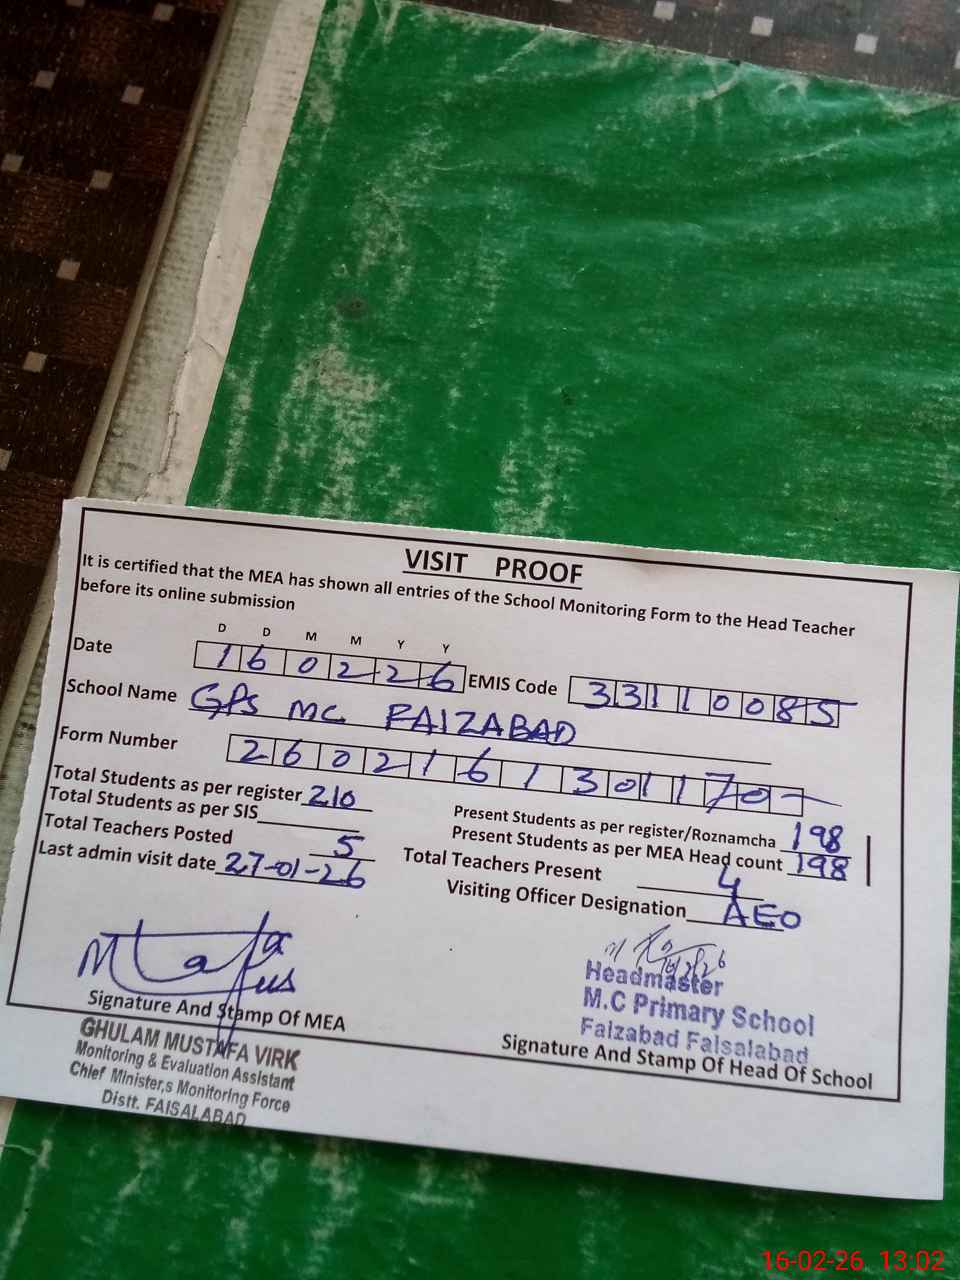 VISIT PROOF
It is certified that the MEA has shown all entries of the School Monitoring Form to the Head Teacher
before its online submission
D D M M Y Y
Date 160226 EMIS Code 33110085
School Name GPS MC FAIZABAD
Form Number 2602161301170-
Total Students as per register 210 Present Students as per register/Roznamcha 198
Total Students as per SIS Present Students as per MEA Head count 198
Total Teachers Posted 5 Total Teachers Present 4
Last admin visit date 27-01-26 Visiting Officer Designation AEO
16/2/26
Headmaster
M.C Primary School
Faizabad Faisalabad
Signature And Stamp Of MEA
Signature And Stamp Of Head Of School
GHULAM MUSTAFA VIRK
Monitoring & Evaluation Assistant
Chief Minister,s Monitoring Force
Distt. FAISALABAD
16-02-26 13:02